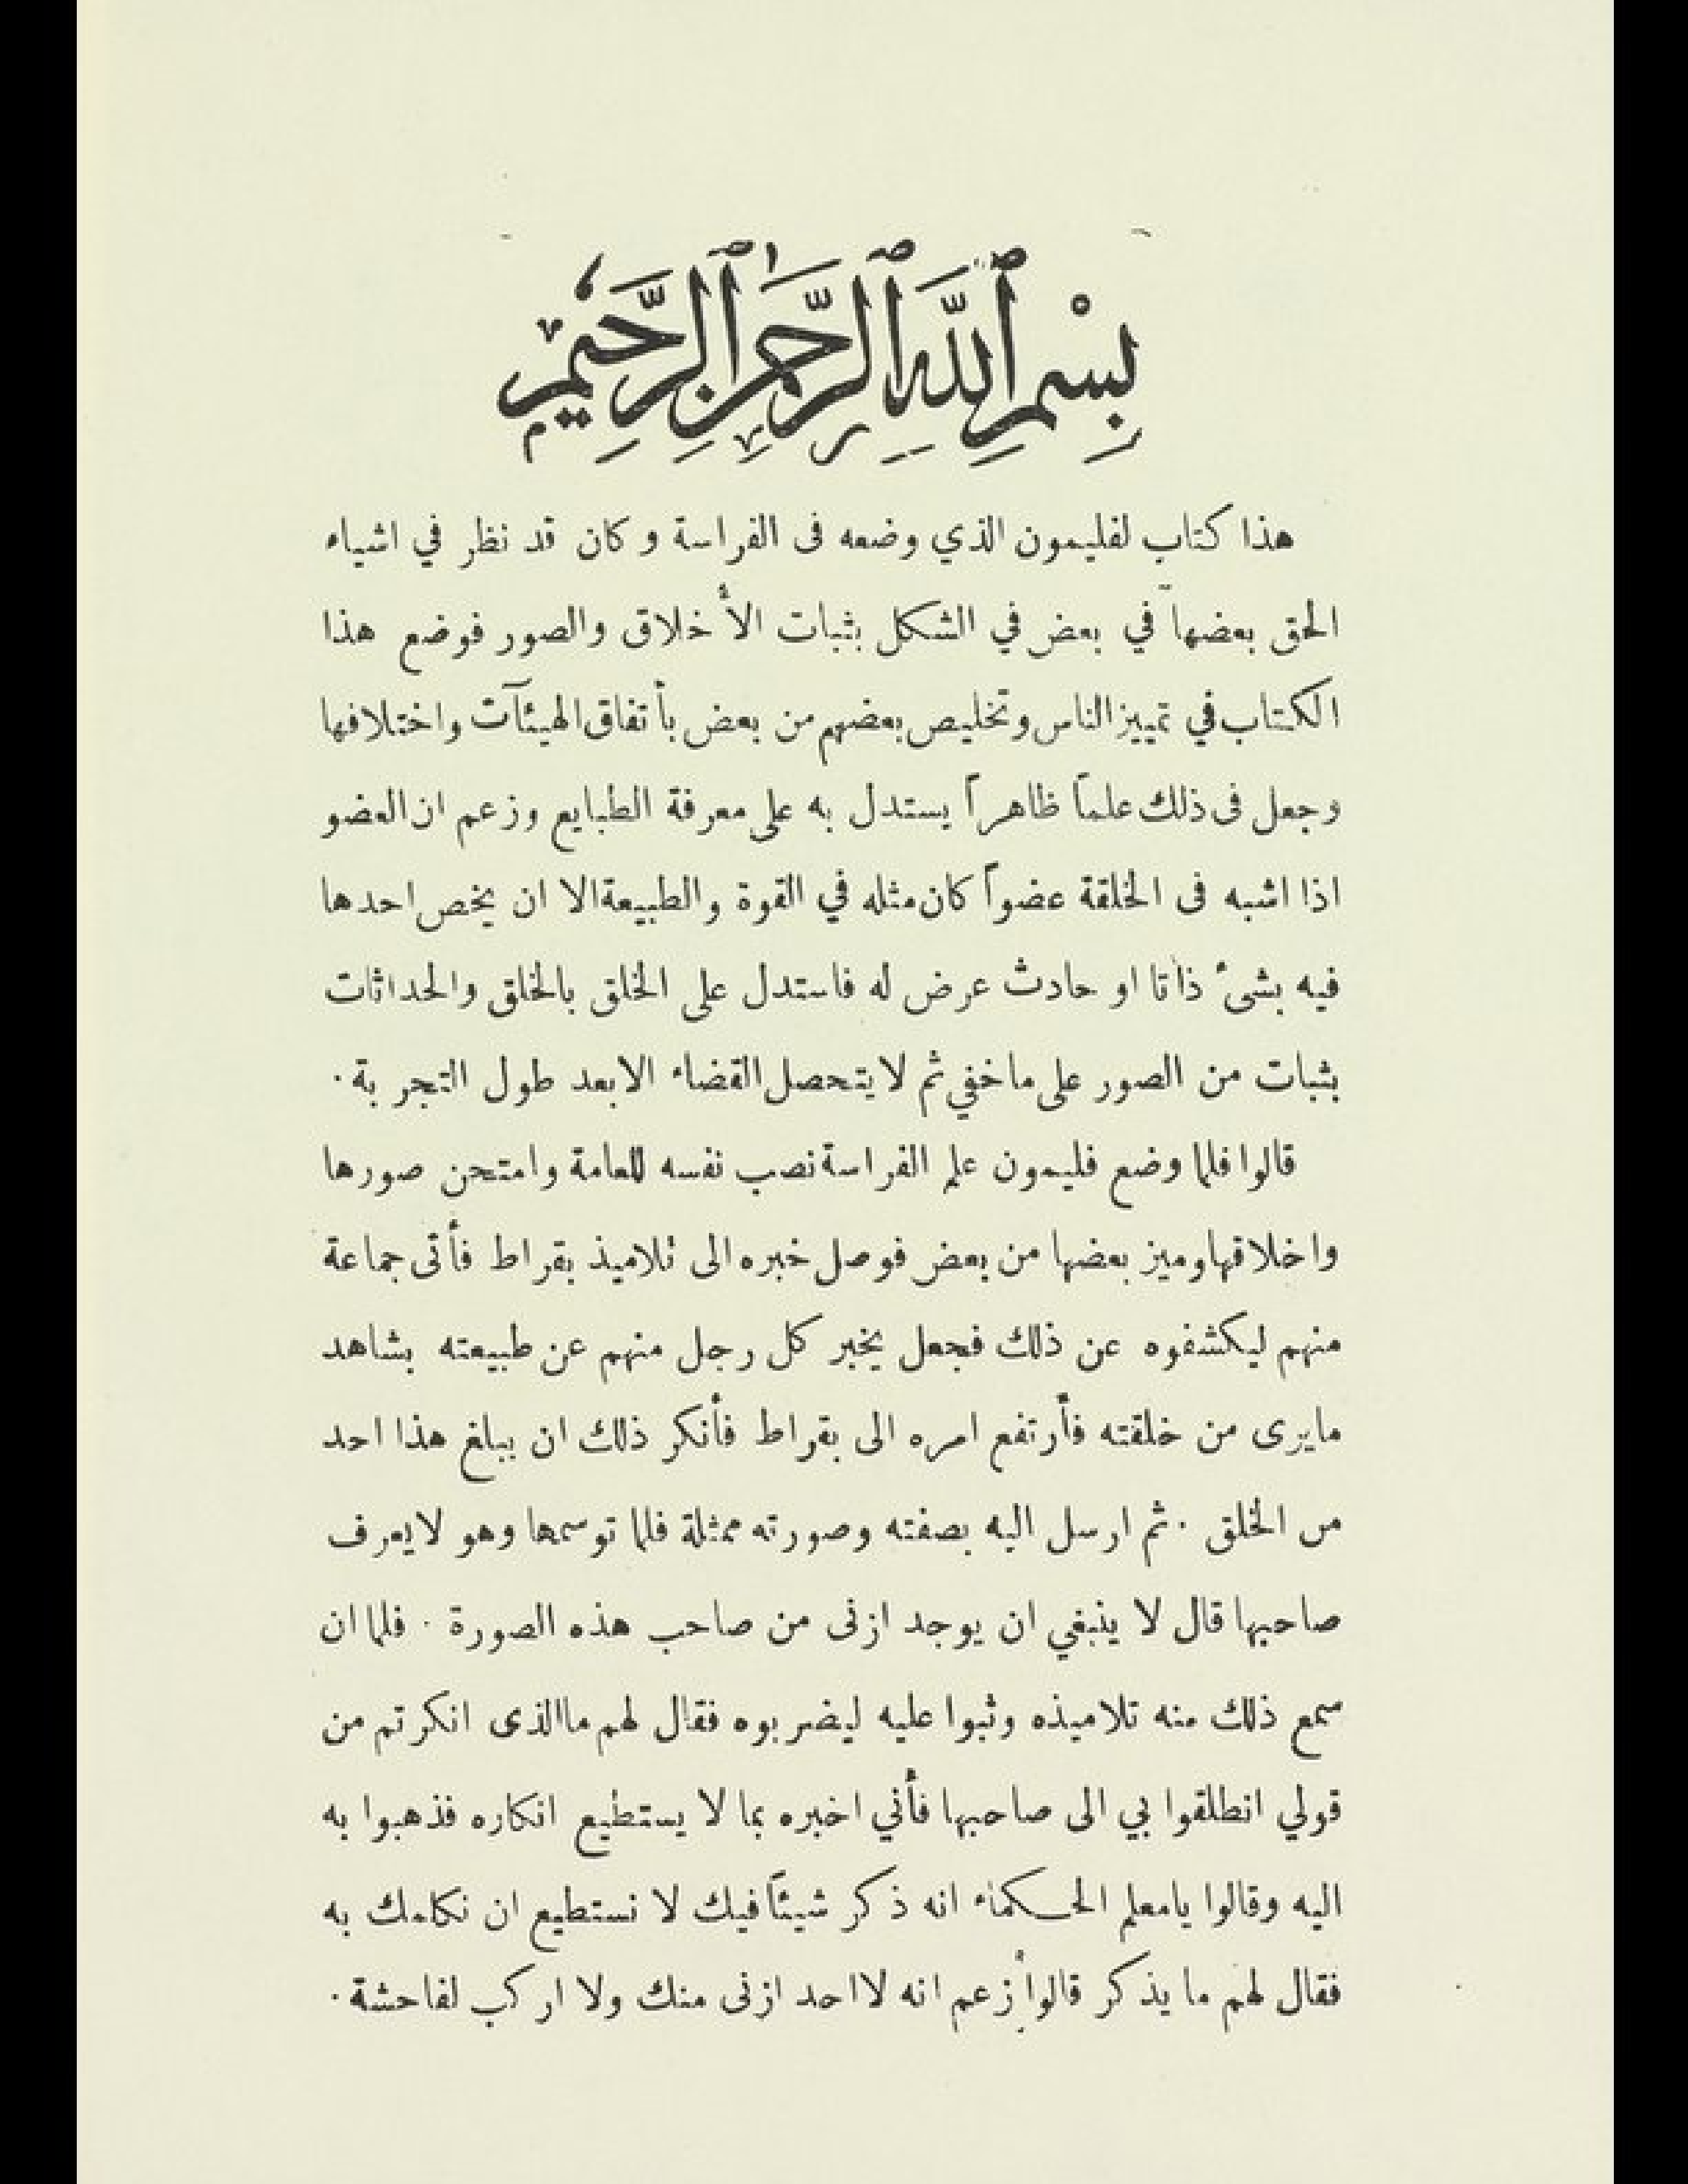 بِسْمِ ٱللَّهِ ٱلرَّحْمَٰنِ ٱلرَّحِيمِ
هذا كتاب لفليمون الذي وضعه فى الفراسة وكان قد نظر في اشياء
الحق بعضها في بعض في الشكل بثبات الأخلاق والصور فوضع هذا
الكتاب في تمييز الناس وتخليص بعضهم من بعض بأتفاق الهيئآت واختلافها
وجعل فى ذلك علماً ظاهراً يستدل به على معرفة الطبايع وزعم ان العضو
اذا اشبه فى الخلقة عضواً كان مثله في القوة والطبيعة الا ان يخص احدها
فيه بشىء ذاتا او حادث عرض له فاستدل على الخلق بالخلق والحداثات
بثبات من الصور على ما خفي ثم لا يتحصل القضاء الا بعد طول التجربة .
قالوا فلما وضع فليمون علم الفراسة نصب نفسه للعامة وامتحن صورها
واخلاقها وميز بعضها من بعض فوصل خبره الى تلاميذ بقراط فأتى جماعة
منهم ليكشفوه عن ذلك فجعل يخبر كل رجل منهم عن طبيعته بشاهد
مايرى من خلقته فأرتفع امره الى بقراط فأنكر ذلك ان يبلغ هذا احد
من الخلق . ثم ارسل اليه بصفته وصورته ممثلة فلما توسمها وهو لا يعرف
صاحبها قال لا ينبغي ان يوجد ازنى من صاحب هذه الصورة . فلما ان
سمع ذلك منه تلاميذه وثبوا عليه ليضربوه فقال لهم ما الذى انكرتم من
قولي انطلقوا بي الى صاحبها فأني اخبره بما لا يستطيع انكاره فذهبوا به
اليه وقالوا يامعلم الحكماء انه ذكر شيئاً فيك لا نستطيع ان نكلمك به
فقال لهم ما يذكر قالوا زعم انه لا احد ازنى منك ولا اركب لفاحشة .